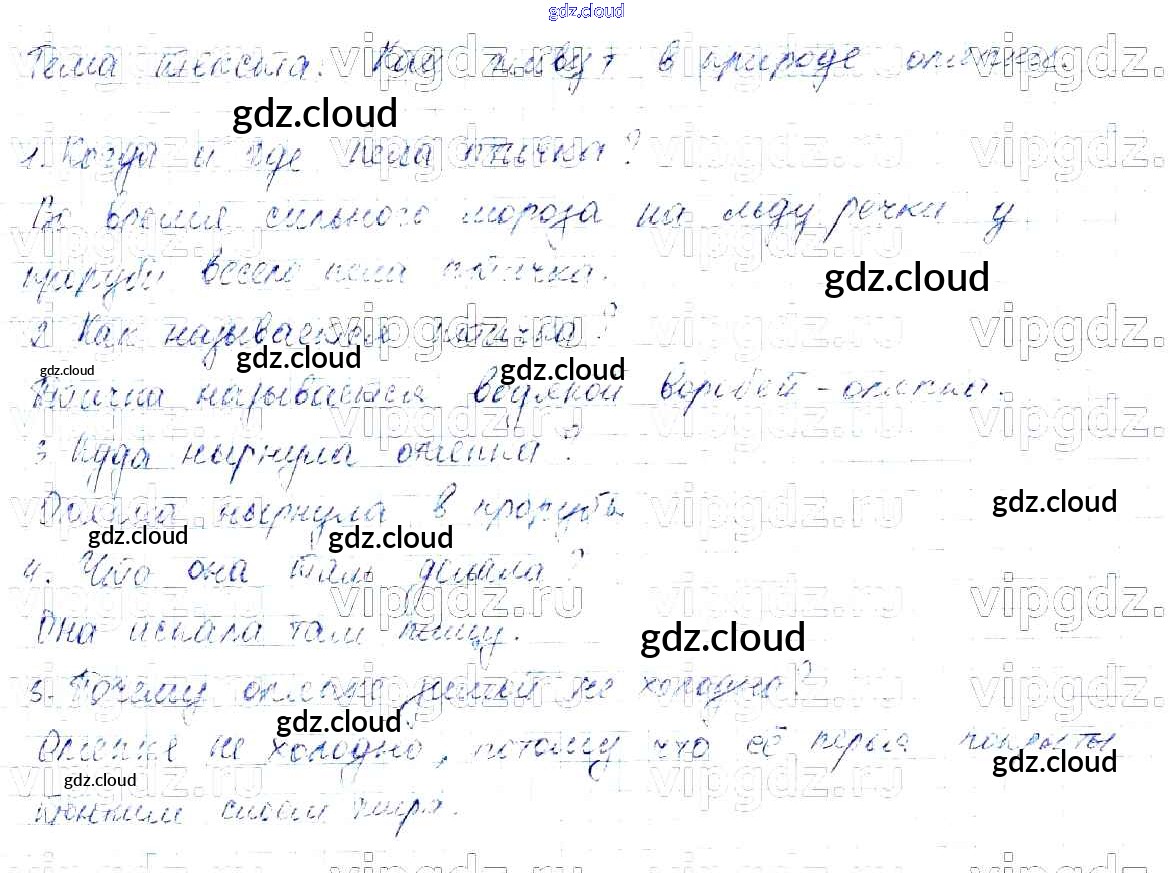 gdz.cloud
Тема текста. Как живут в природе оляпки.
gdz.cloud
1. Когда и где пела птичка?
Во время сильного мороза на льду речки у
проруби весело пела птичка.
gdz.cloud
2 Как называется птичка?
gdz.cloud
gdz.cloud
gdz.cloud
Птичка называется водяной воробей - оляпка.
3 Куда нырнула оляпка?
gdz.cloud
Оляпка нырнула в прорубь
gdz.cloud
gdz.cloud
4. Что она там делала?
Она искала там пищу.
gdz.cloud
5. Почему оляпке зимой не холодно?
gdz.cloud
Оляпке не холодно, потому что её перья покрыты
gdz.cloud
gdz.cloud
тонким слоем жира.
vipgdz.ru